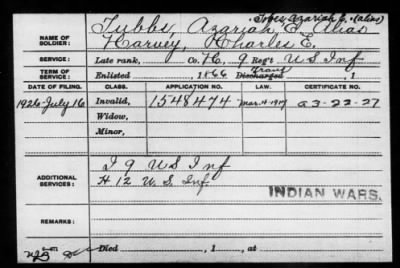 Tobey, Azariah E. (alias)
NAME OF SOLDIER: Tubbs, Azariah E. alias
Harvey, Charles E.
SERVICE: Late rank, Co. H, 9 Reg't U S Inf
TERM OF SERVICE: Enlisted , 1866 Discharged , 1
DATE OF FILING. CLASS. APPLICATION NO. LAW. CERTIFICATE NO.
1926-July 16 Invalid, 1548474 Mar. 4-1917 a 3-22-27
Widow,
Minor,
ADDITIONAL SERVICES: I 9 U S Inf
H 12 U. S. Inf.
INDIAN WARS.
REMARKS:
Died , 1 , at